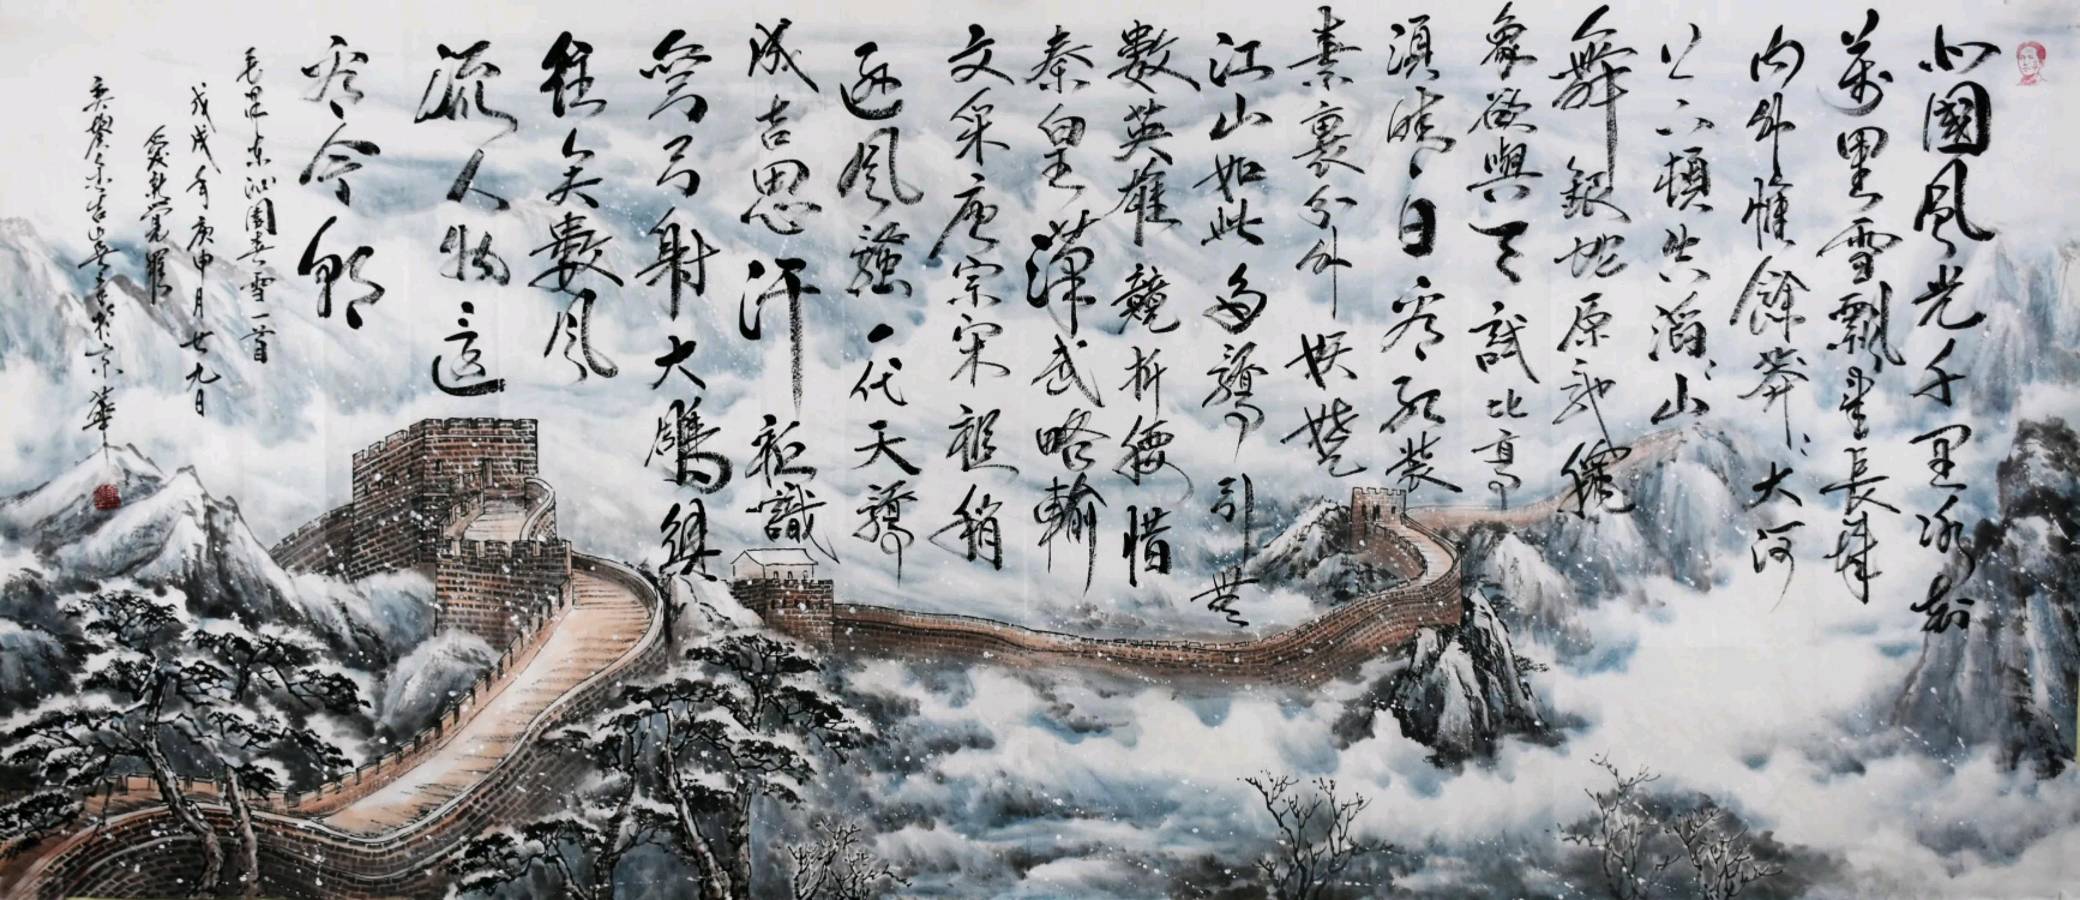 北國风光千里冰封
萬里雪飄望長城
内外惟餘莽莽大河
上下頓失滔滔山
舞銀蛇原馳蠟
象欲與天試比高
須晴日看红装
素裹分外妖娆
江山如此多嬌引無
數英雄競折腰惜
秦皇漢武略輸
文采唐宗宋祖稍
逊风骚一代天驕
成吉思汗祗識
彎弓射大鵰俱
往矣數风
流人物還
看今朝
毛澤東沁園春雪一首
戊戌年庚申月廿九日
京華